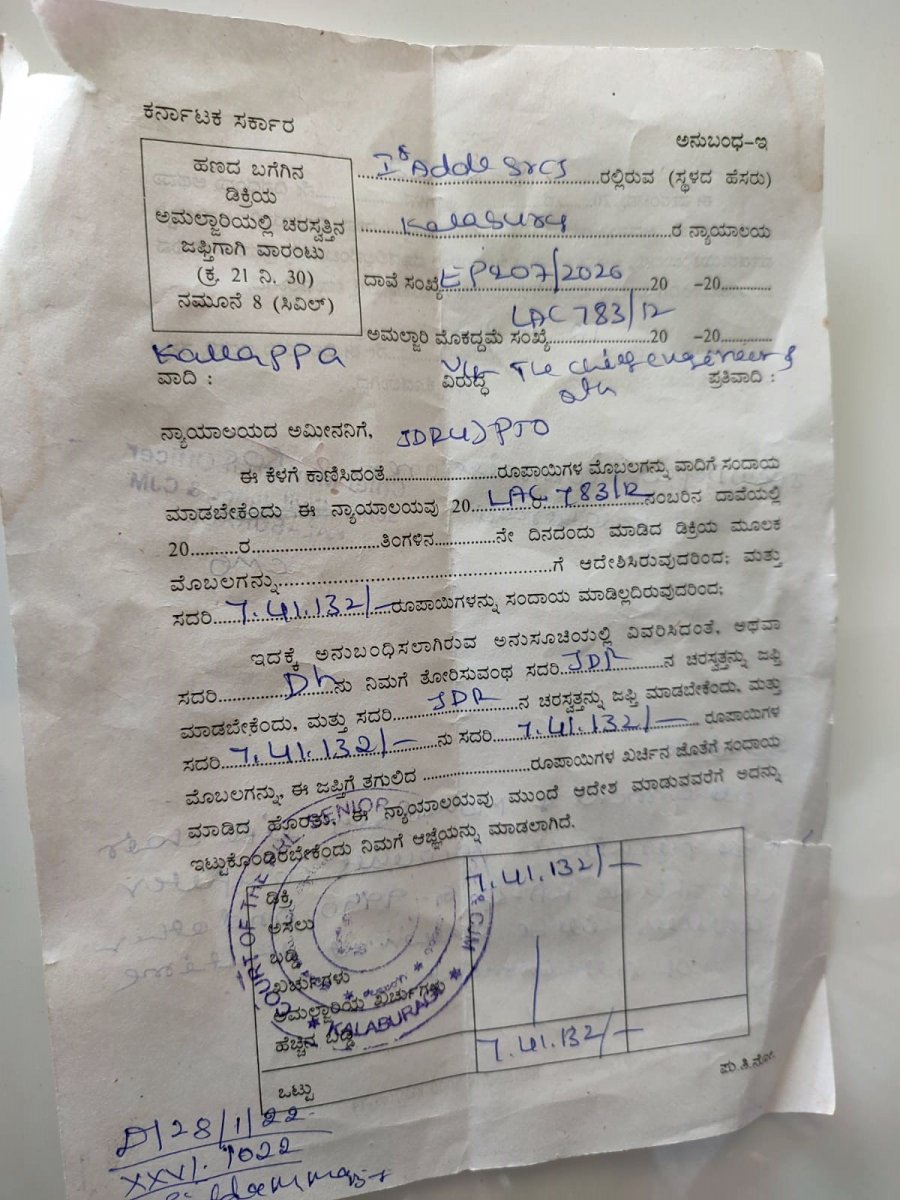 ಕರ್ನಾಟಕ ಸರ್ಕಾರ
ಅನುಬಂಧ-ಇ
ಹಣದ ಬಗೆಗಿನ
ಡಿಕ್ರಿಯ
ಅಮಲ್ಜಾರಿಯಲ್ಲಿ ಚರಸ್ವತ್ತಿನ
ಜಫ್ತಿಗಾಗಿ ವಾರಂಟು
(ಕ್ರ. 21 ನಿ. 30)
ನಮೂನೆ 8 (ಸಿವಿಲ್)
Addl SrCJ ರಲ್ಲಿರುವ (ಸ್ಥಳದ ಹೆಸರು)
ರ ನ್ಯಾಯಾಲಯ
ದಾವೆ ಸಂಖ್ಯೆ 20 -20
LAC 783/12
ಅಮಲ್ಜಾರಿ ಮೊಕದ್ದಮೆ ಸಂಖ್ಯೆ 20 -20
Kallappa The chief engineer &
ವಾದಿ : ವಿರುದ್ಧ ಪ್ರತಿವಾದಿ :
ನ್ಯಾಯಾಲಯದ ಅಮೀನನಿಗೆ,
ಈ ಕೆಳಗೆ ಕಾಣಿಸಿದಂತೆ ರೂಪಾಯಿಗಳ ಮೊಬಲಗನ್ನು ವಾದಿಗೆ ಸಂದಾಯ
ಮಾಡಬೇಕೆಂದು ಈ ನ್ಯಾಯಾಲಯವು 20 LAC 783/12 ನಂಬರಿನ ದಾವೆಯಲ್ಲಿ
20 ರ ತಿಂಗಳಿನ ನೇ ದಿನದಂದು ಮಾಡಿದ ಡಿಕ್ರಿಯ ಮೂಲಕ
ಮೊಬಲಗನ್ನು ಗೆ ಆದೇಶಿಸಿರುವುದರಿಂದ; ಮತ್ತು
ಸದರಿ 7.41.132/- ರೂಪಾಯಿಗಳನ್ನು ಸಂದಾಯ ಮಾಡಿಲ್ಲದಿರುವುದರಿಂದ;
ಇದಕ್ಕೆ ಅನುಬಂಧಿಸಲಾಗಿರುವ ಅನುಸೂಚಿಯಲ್ಲಿ ವಿವರಿಸಿದಂತೆ, ಅಥವಾ
ಸದರಿ Dh ನು ನಿಮಗೆ ತೋರಿಸುವಂಥ ಸದರಿ JDR ನ ಚರಸ್ವತ್ತನ್ನು ಜಫ್ತಿ
ಮಾಡಬೇಕೆಂದು, ಮತ್ತು ಸದರಿ JDR ನ ಚರಸ್ವತ್ತನ್ನು ಜಫ್ತಿ ಮಾಡಬೇಕೆಂದು, ಮತ್ತು
ಸದರಿ 7.41.132/- ನು ಸದರಿ 7.41.132/- ರೂಪಾಯಿಗಳ
ಮೊಬಲಗನ್ನು, ಈ ಜಫ್ತಿಗೆ ತಗುಲಿದ ರೂಪಾಯಿಗಳ ಖರ್ಚಿನ ಜೊತೆಗೆ ಸಂದಾಯ
ಮಾಡಿದ ಹೊರತು, ಈ ನ್ಯಾಯಾಲಯವು ಮುಂದೆ ಆದೇಶ ಮಾಡುವವರೆಗೆ ಅದನ್ನು
ಇಟ್ಟುಕೊಂಡಿರಬೇಕೆಂದು ನಿಮಗೆ ಆಜ್ಞೆಯನ್ನು ಮಾಡಲಾಗಿದೆ.
ಡಿಕ್ರಿ 7.41.132/-
ಅಸಲು
ಬಡ್ಡಿ
ಖರ್ಚುಗಳು
ಅಮಲ್ಜಾರಿಯ ಖರ್ಚುಗಳು
ಹೆಚ್ಚಿನ ಬಡ್ಡಿ
ಒಟ್ಟು 7.41.132/-
COURT OF THE SENIOR CJM
* KALABURAGI *
ಪು.ತಿ.ನೋ.
28/1/22